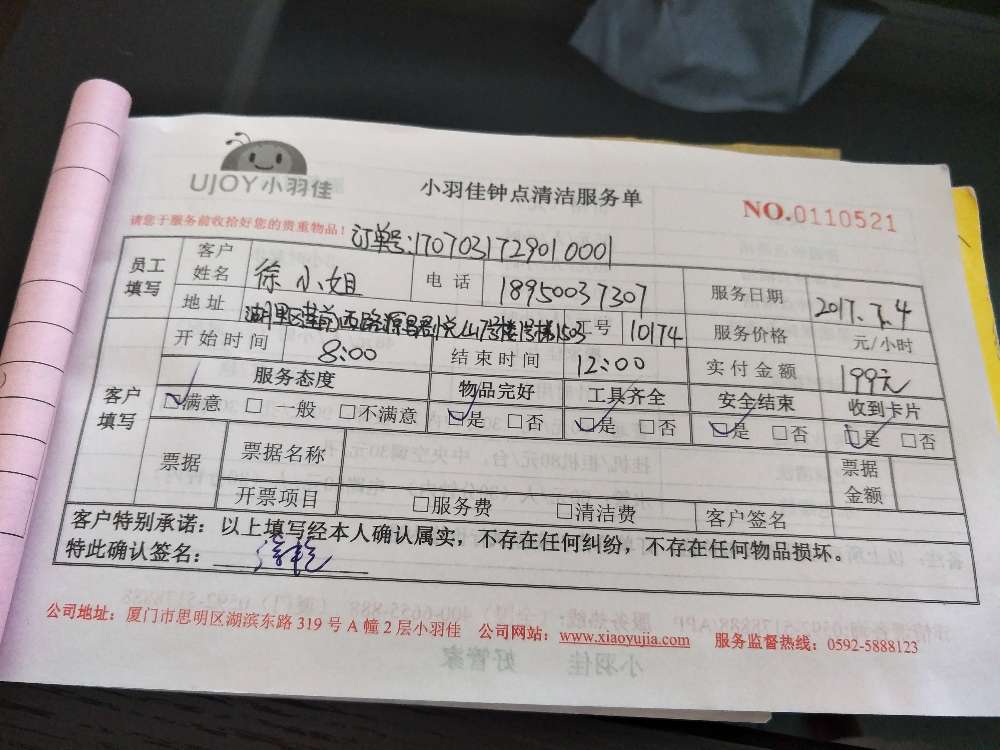 UJOY小羽佳
小羽佳钟点清洁服务单
NO.0110521
请您于服务前收拾好您的贵重物品！
订单号:1707031729010001
员工填写 客户姓名 徐小姐 电话 18950037307 服务日期 2017.7.4
地址 湖里区莲前西路源昌君悦山 工号 10174 服务价格 元/小时
开始时间 8:00 结束时间 12:00 实付金额 199元
客户填写 服务态度 物品完好 工具齐全 安全结束 收到卡片
☑满意 □一般 □不满意 ☑是 □否 ☑是 □否 ☑是 □否 ☑是 □否
票据 票据名称 票据金额
开票项目 □服务费 □清洁费 客户签名
客户特别承诺：以上填写经本人确认属实，不存在任何纠纷，不存在任何物品损坏。
特此确认签名：
公司地址：厦门市思明区湖滨东路 319 号 A 幢 2 层小羽佳 公司网站：www.xiaoyujia.com 服务监督热线：0592-5888123